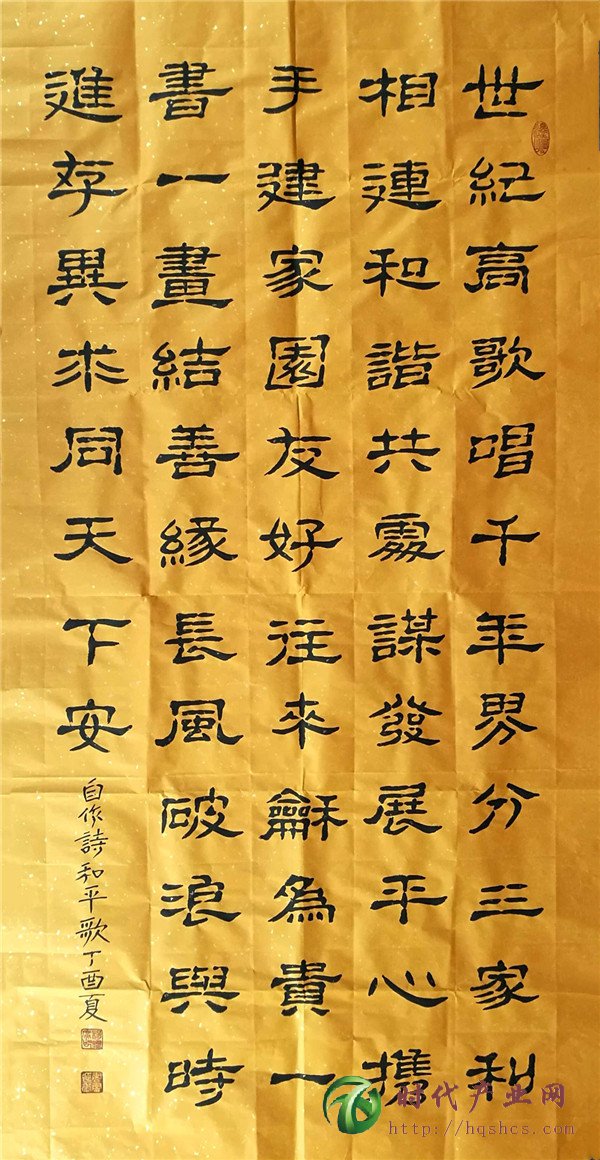 世紀高歌唱千年界分三家利
相連和諧共處謀發展平心攜
手建家園友好往來龢為貴一
書一畫結善緣長風破浪與時
進存異求同天下安
自作詩和平歌丁酉夏
时代产业网
http://hqshcs.com